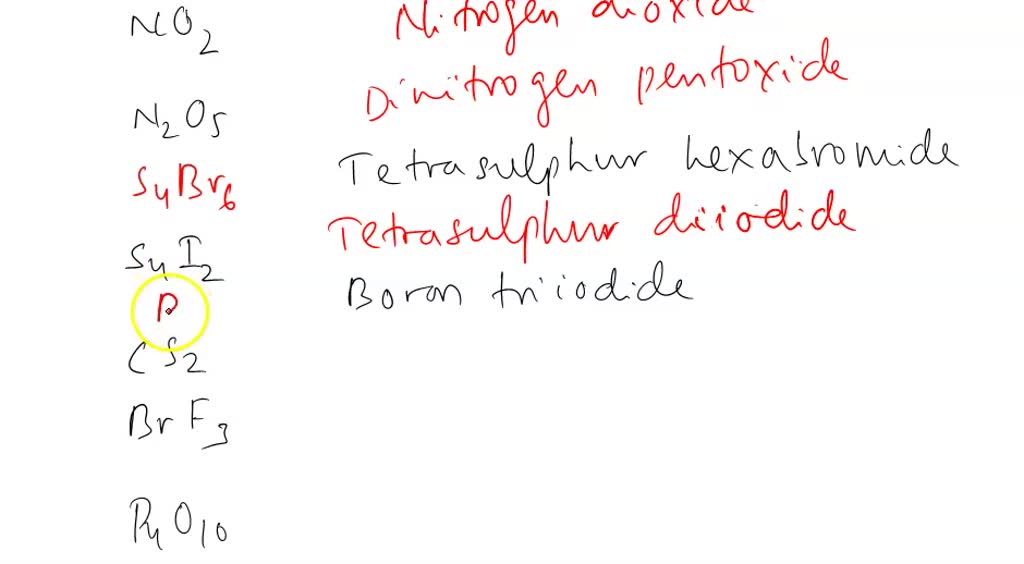 NO2 Nitrogen dioxide
N2O5 Dinitrogen pentoxide
S4Br6 Tetrasulphur hexabromide
S4I2 Tetrasulphur diiodide
B Boron triiodide
CS2
BrF3
P4O10